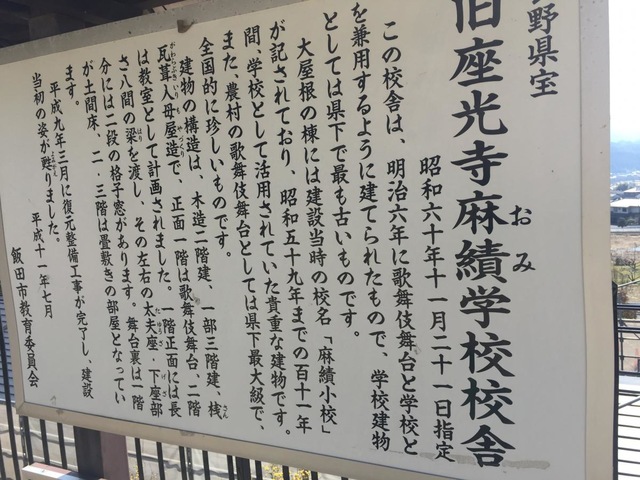 野県宝
旧座光寺麻績学校校舎
おみ
昭和六十年十一月二十一日指定
この校舎は、明治六年に歌舞伎舞台と学校と
を兼用するように建てられたもので、学校建物
としては県下で最も古いものです。
大屋根の棟には建設当時の校名「麻績小校」
が記されており、昭和五十九年までの百十一年
間、学校として活用されていた貴重な建物です。
また、農村の歌舞伎舞台としては県下最大級で、
全国的に珍しいものです。
建物の構造は、木造二階建、一部三階建、桟
さん
瓦葺入母屋造で、正面一階は歌舞伎舞台、二階
がわらぶきいりもやづくり
は教室として計画されました。一階正面には長
さ八間の梁を渡し、その左右の太夫座・下座部
はり
たゆうざ
げざ
分には二段の格子窓があります。舞台裏は一階
が土間床、二・三階は畳敷きの部屋となってい
ます。
平成九年三月に復元整備工事が完了し、建設
当初の姿が甦りました。
よみがえ
平成十一年七月
飯田市教育委員会